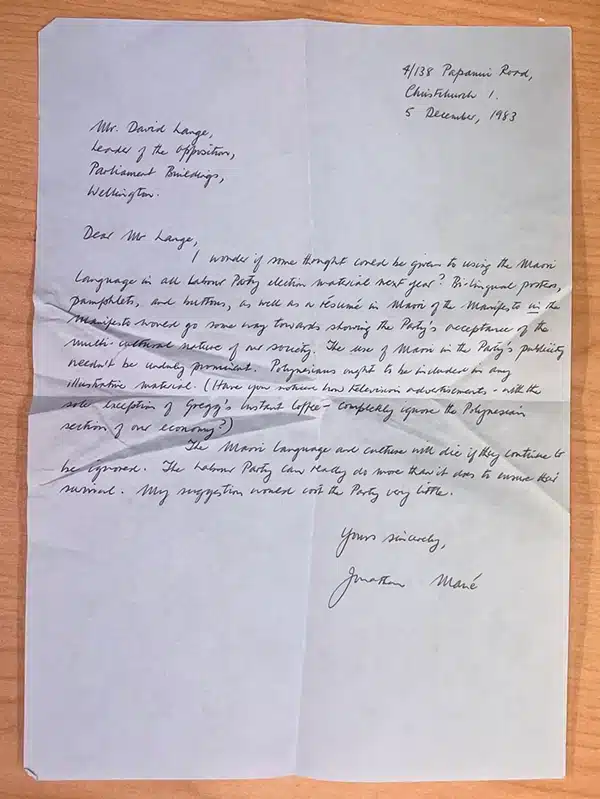 4/138 Papanui Road,
Christchurch 1.
5 December, 1983
Mr. David Lange,
Leader of the Opposition,
Parliament Buildings,
Wellington.
Dear Mr Lange,
I wonder if some thought could be given to using the Maori
Language in all Labour Party election material next year? Bi-lingual posters,
pamphlets, and buttons, as well as a résumé in Maori of the Manifesto in the
Manifesto would go some way towards showing the Party's acceptance of the
multi-cultural nature of our society. The use of Maori in the Party's publicity
needn't be unduly prominent. Polynesians ought to be included in any
illustrative material. (Have you noticed how television advertisements - with the
sole exception of Gregg's Instant Coffee - completely ignore the Polynesian
section of our economy?)
The Maori Language and culture will die if they continue to
be ignored. The Labour Party can really do more than it does to ensure their
survival. My suggestion would cost the Party very little.
Yours sincerely,
Jonathan Mané